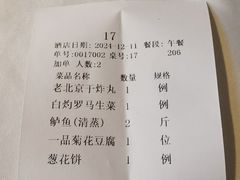 17
酒店日期: 2024-12-11 餐段: 午餐
单号:0017002 桌号:17 206
加单 人数:2
菜品名称 数量 规格
老北京干炸丸 1 例
白灼罗马生菜 1 例
鲈鱼(清蒸) 2 斤
一品菊花豆腐 1 位
葱花饼 1 例